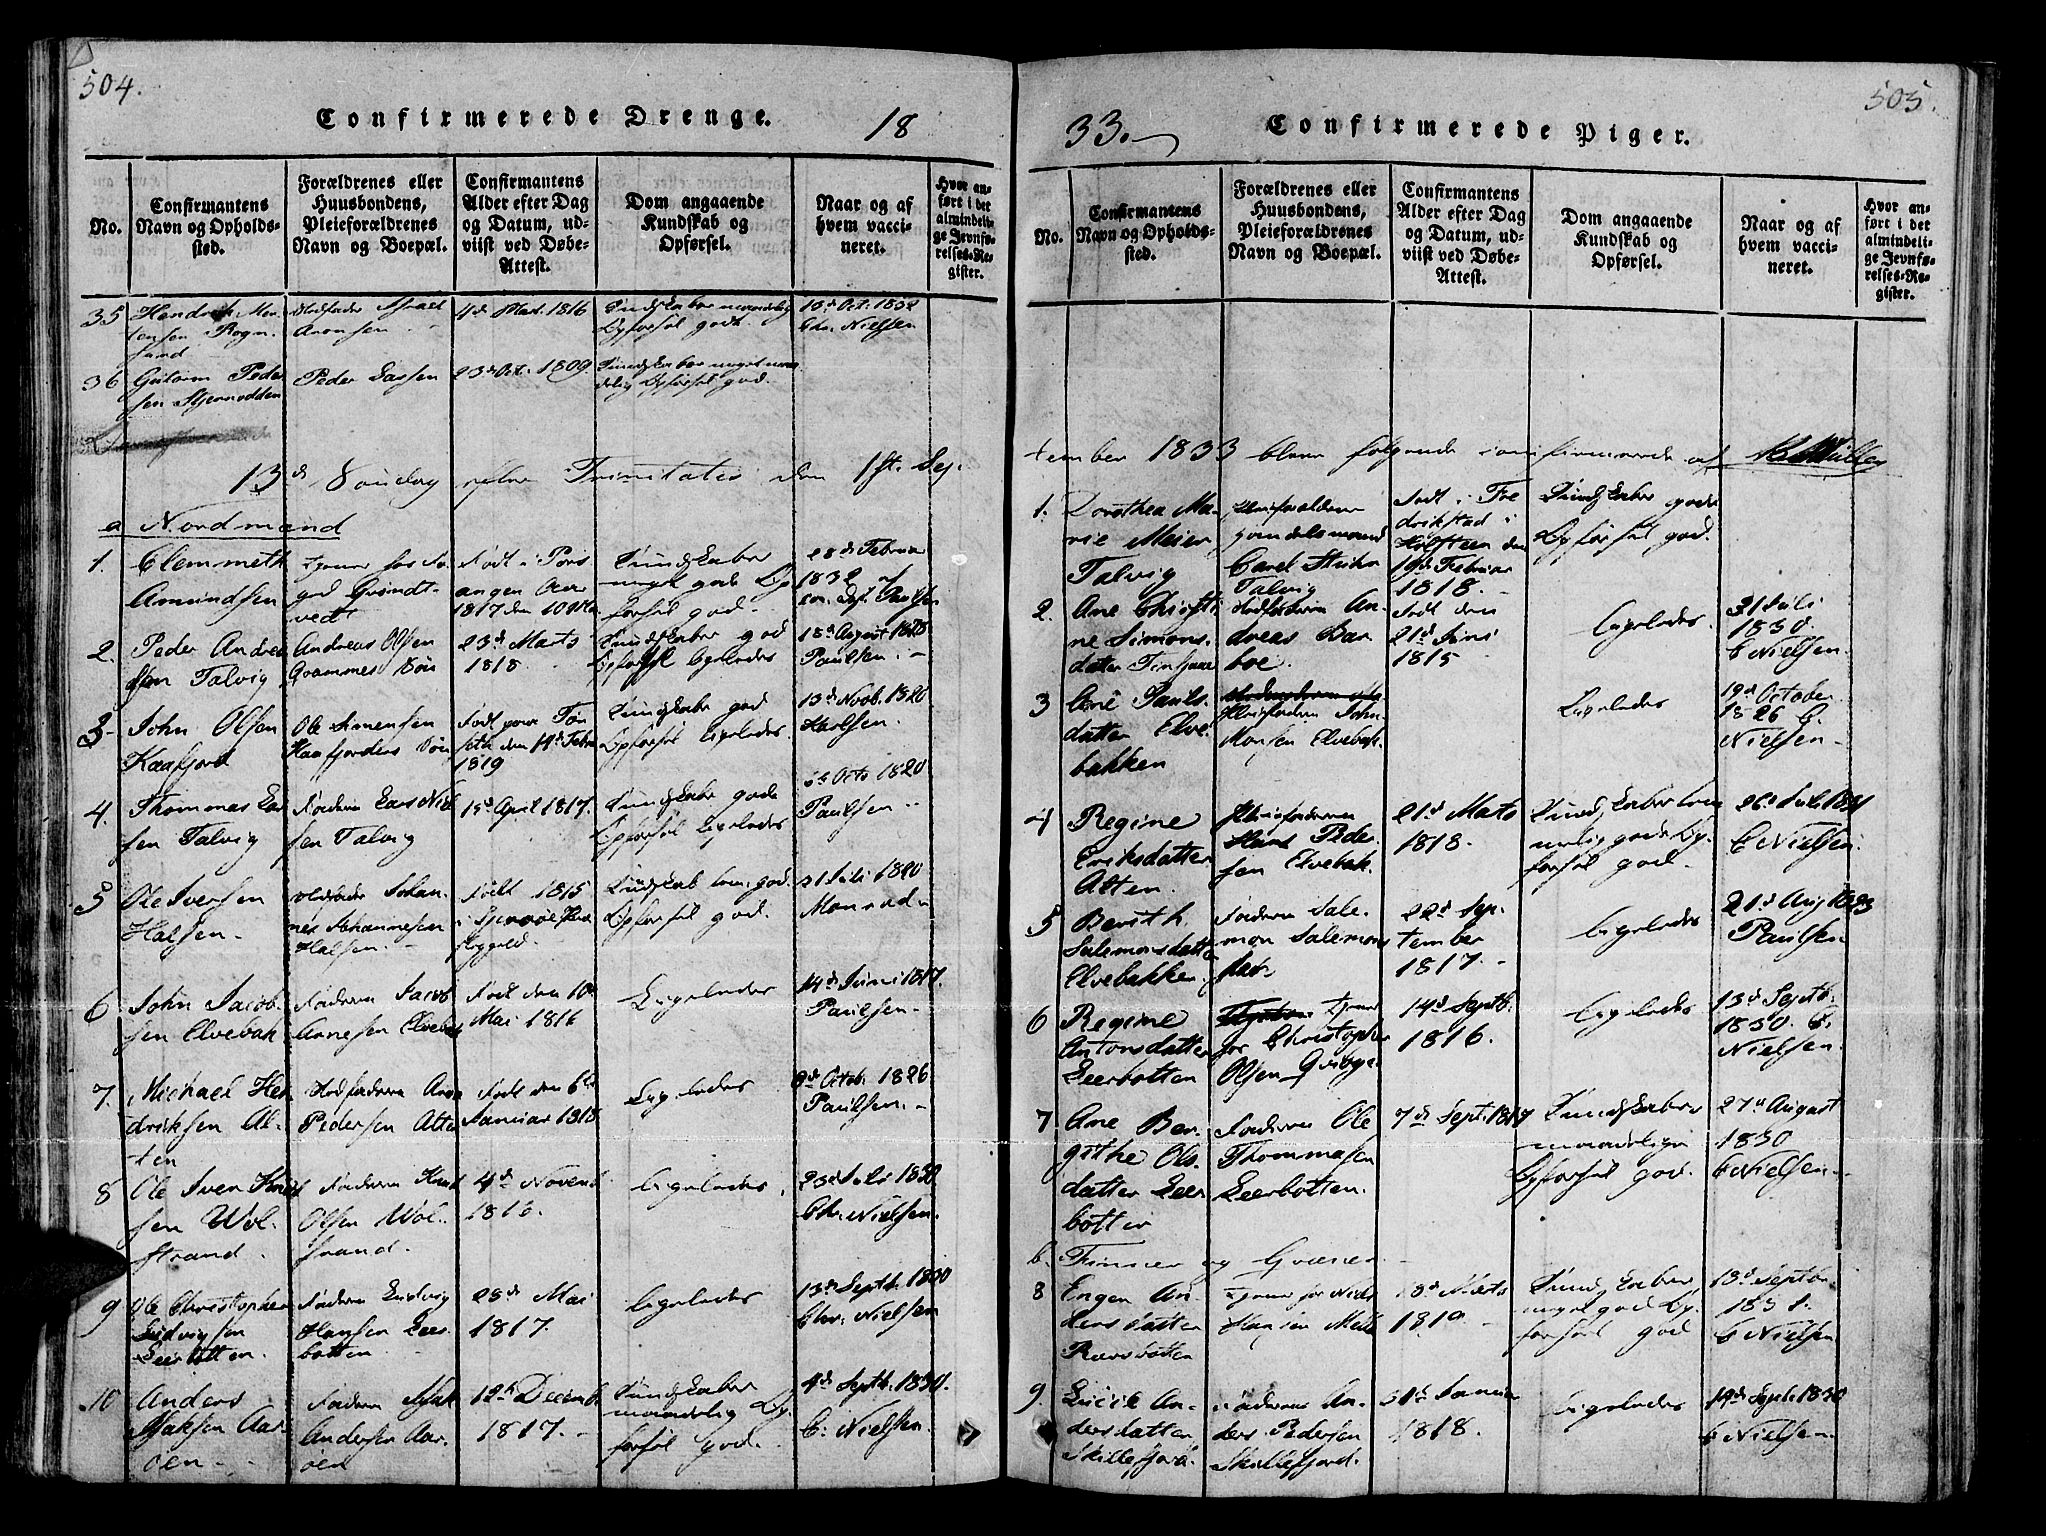 504.
Confirmerede Drenge.
18
No.
Confirmantens
Navn og Opholds-
sted.
Forældrenes eller
Huusbondens,
Pleieforældrenes
Navn og Boepæl.
Confirmantens
Alder efter Dag
og Datum, ud-
viist ved Døbe-
Attest.
Dom angaaende
Kundskab og
Opførsel.
Naar og af
hvem vacci-
neret.
Hvor an-
ført i det
almindeli-
ge Jevnfø-
relses-Re-
gister.
35
Aronsen
4de Mart. 1816
Opførsel godt.
13de Oct. 1832
Chr. Nielsen
36
Guttorm Peder
sen Stjernodden
Peder Larsen
23de Oct. 1809
13de Søndag efter Trinitatis den 1ste Sep-
a Nordmænd
1.
Clemmeth
Amundsen
Født i Pors
angen
1817 den 10
Kundskaber
meget gode Op-
førsel god.
28de Februar
1832
Paulsen
2.
Peder Andrea
sen Talvig
Andreas Olsen
23de Marts
1818
Kundskaber god
Opførsel ligeledes
18de August 1828
Paulsen.
3-
John Olsen
Kaafjord
Ole Simensen
Kaafjorden
1819
Kundskaber god
Opførsel ligeledes.
13de Novb. 1826
Karlsen.
4.
Thommas Lar
sen Talvig
Faderen Lars Niel
sen Talvig
15de April 1817.
Kundskaber gode
Opførsel ligeledes
Octb 1820
Paulsen
5
Ole Iversen
Halsen
Johan-
nes Johannesen
Halsen.
Født 1815
Opførsel god.
Monrad
6
John Jacob
sen Elvebak
Faderen Jacob
Arnesen Elvebak
Født den 10de
Mai 1816
Ligeledes
14de Juni 1817.
Paulsen
7.
Michael Hen
driksen Al-
ten
Pedersen Alten
Født den 6te
Januar 1818
Ligeledes
8de Octob. 1826
Paulsen.
8
Ole Iver Knud
sen Wol-
strand.
Faderen Knud
Olsen Wol-
strand.
4de Novemb
1816.
ligeledes.
23de Juli 1830
Chr. Nielsen.
9
Ole Christopher
Ludvigsen
Leerbotten.
Faderen Ludvig
Hansen Leer-
botten.
28de Mai
1817.
ligeledes
13de Septb. 1830
Chr. Nielsen
10
Anders
Isaksen Aar-
øen
Faderen Isak
Andersen Aar-
øen
12te Decemb.
1817.
Kundskaber
maadelig Op-
førsel god.
4de Septb. 1830.
C. Nielsen
505.
33.
Confirmerede Piger.
No.
Confirmantens
Navn og Opholds-
sted.
Forældrenes eller
Huusbondens,
Pleieforældrenes
Navn og Boepæl.
Confirmantens
Alder efter Dag
og Datum, ud-
viist ved Døbe-
Attest.
Dom angaaende
Kundskab og
Opførsel.
Naar og af
hvem vacci-
neret.
Hvor an-
ført i det
almindeli-
ge Jevnfø-
relses-Re-
gister.
tember 1833 bleve følgende confirmerede af
1.
Dorothea Ma-
rie Meier
Talvig
Pleiefaderen
Handelsmand
Carel
Talvig
Født i Fre
drikstad i
Holsteen den
19de Februar
1818.
Kundskaber gode
Opførsel god.
2.
Ane Christi
ne Simons-
datter
An-
dreas Bar-
boe.
Født den
21de Juni
1815
ligeledes.
31 Juli
1830.
C Nielsen.
3
Ane Pauls-
datter Elve-
bakken
Pleiefaderen John
Monsen Elvebak.
Ligeledes
19de October
1826 C.
Nielsen
4
Regine
Eriksdatter
Alten.
Pleiefaderen
Hans Peder
sen Elvebak.
21de Marts
1818.
Kundskaber tem
melig gode Op-
førsel god.
26de Juli 1831
C Nielsen.
5
Berith
Salemonsdatter
Elvebakken
Faderen Sale-
mon Salemons
sen
22de Sep-
tember
1817.
ligeledes
21de Aug 1823
Paulsen
6
Regine
Antonsdatter
Leerbotten
tjener
for Christopher
Olsen Qviby
14de Septb.
1816.
ligeledes
13de Septb.
1830. C.
Nielsen.
7
Ane Ber-
githe Ols-
datter Leer-
botten
Faderen Ole
Thommasen
Leerbotten.
7de Sept. 1817
Kundskaber
maadelige
Opførsel god.
27de August
1830
C Nielsen
b. Finner og Qvæner
8
Engen An-
dersdatter
Ravsbotten
Tjener for Niels
Hansen
18de Marts
1819
Kundskaber
meget god Op-
førsel god
13de Septbr.
1831.
C Nielsen
9.
An-
dersdatter
Skillefjord
Faderen An-
ders Pedersen
Skillefjord.
31de Januar
1818.
ligeledes
14de Septb 1830
C Nielsen